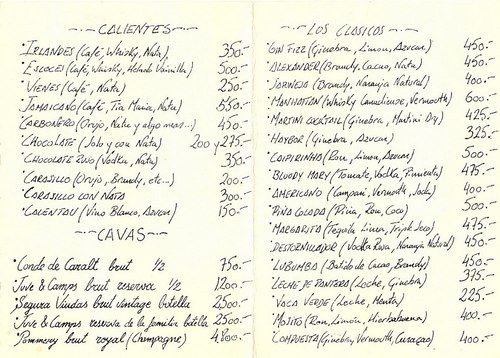 CALIENTES
IRLANDES (Café, Whisky, Nata) 350.-
ESCOCES (Café, Whisky, Helado Vainilla) 500.-
VIENES (Café, Nata) 250.-
JAMAICANO (Café, Tia Maria, Nata) 550.-
CARBONERO (Orujo, Nata y algo mas...) 450.-
CHOCOLATE (Solo y con Nata) 200 y 275.-
CHOCOLATE RUSO (Vodka, Nata) 350.-
CARAJILLO (Orujo, Brandy, etc...) 200.-
CARAJILLO CON NATA 300.-
CALENTAU (Vino Blanco, Azucar) 150.-
CAVAS
Conde de Caralt brut 1/2 750.-
Juve & Camps brut reserva 1/2 1200.-
Segura Viudas brut vintage botella 2500.-
Juve & Camps reserva de la familia botella 2500.-
Pommery brut royal (Champagne) 4.800.-
LOS CLASICOS
GIN FIZZ (Ginebra, Limon, Azucar) 450.-
ALEXANDER (Brandy, Cacao, Nata) 450.-
(Brandy, Naranja Natural) 400.-
MANHATTAN (Whisky Canadiense, Vermouth) 600.-
MARTINI COCKTAIL (Ginebra, Martini Dry) 425.-
(Ginebra, Azucar) 325.-
CAIPIRINHA (Ron, Limon, Azucar) 500.-
BLOODY MARY (Tomate, Vodka, Pimienta) 475.-
AMERICANO (Campari, Vermouth, Soda) 400.-
PIÑA COLADA (Piña, Ron, Coco) 500.-
MARGARITA (Tequila, Limon, Triple Seco) 475.-
DESTORNILLADOR (Vodka Rusa, Naranja Natural) 450.-
LUBUMBA (Batido de Cacao, Brandy) 450.-
LECHE DE PANTERA (Leche, Ginebra) 375.-
VACA VERDE (Leche, Menta) 225.-
MOJITO (Ron, Limon, Hierbabuena) 400.-
COMPUESTA (Ginebra, Vermouth, Curaçao) 400.-